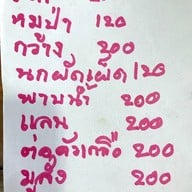 หมูป่า 120
กวาง 200
นกผัดเผ็ด 120
พาบน้ำ 200
แลน 200
ต่อคั่วเกลือ 200
งูสิง 200